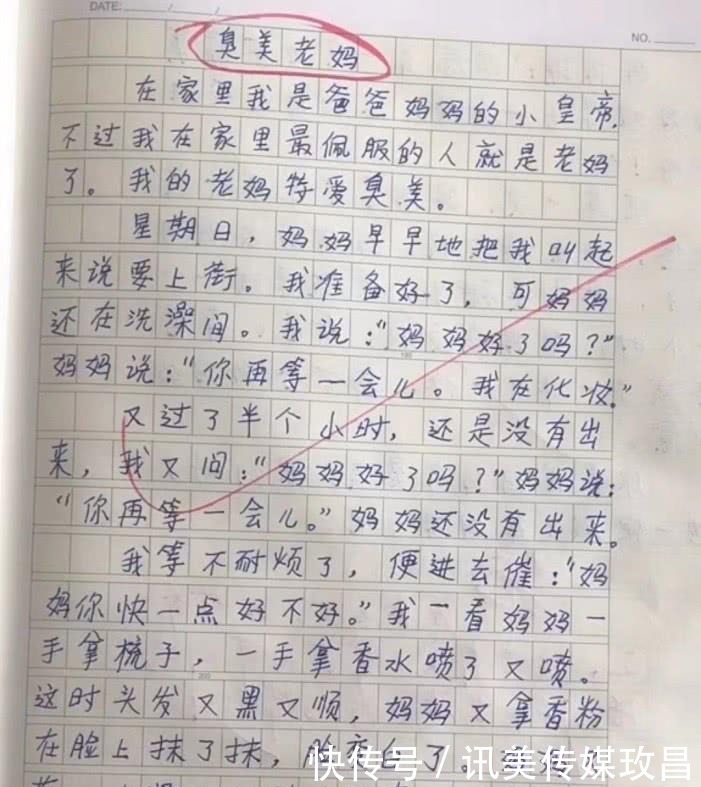 DATE: / /
NO.
臭美老妈
在家里我是爸爸妈妈的小皇帝,
不过我在家里最佩服的人就是老妈
了。我的老妈特爱臭美。
星期日,妈妈早早地把我叫起
来说要上街。我准备好了,可妈妈
还在洗澡间。我说:"妈妈好了吗?"
妈妈说:"你再等一会儿。我在化妆."
又过了半个小时,还是没有出
来,我又问:"妈妈好了吗?"妈妈说:
"你再等一会儿。"妈妈还没有出来。
我等不耐烦了,便进去催:"妈
妈你快一点好不好。"我一看妈妈一
手拿梳子,一手拿香水喷了又喷。
这时头发又黑又顺,妈妈又拿香粉
在脸上抹了抹,脸变白了。
快传号/讯美传媒玫昌